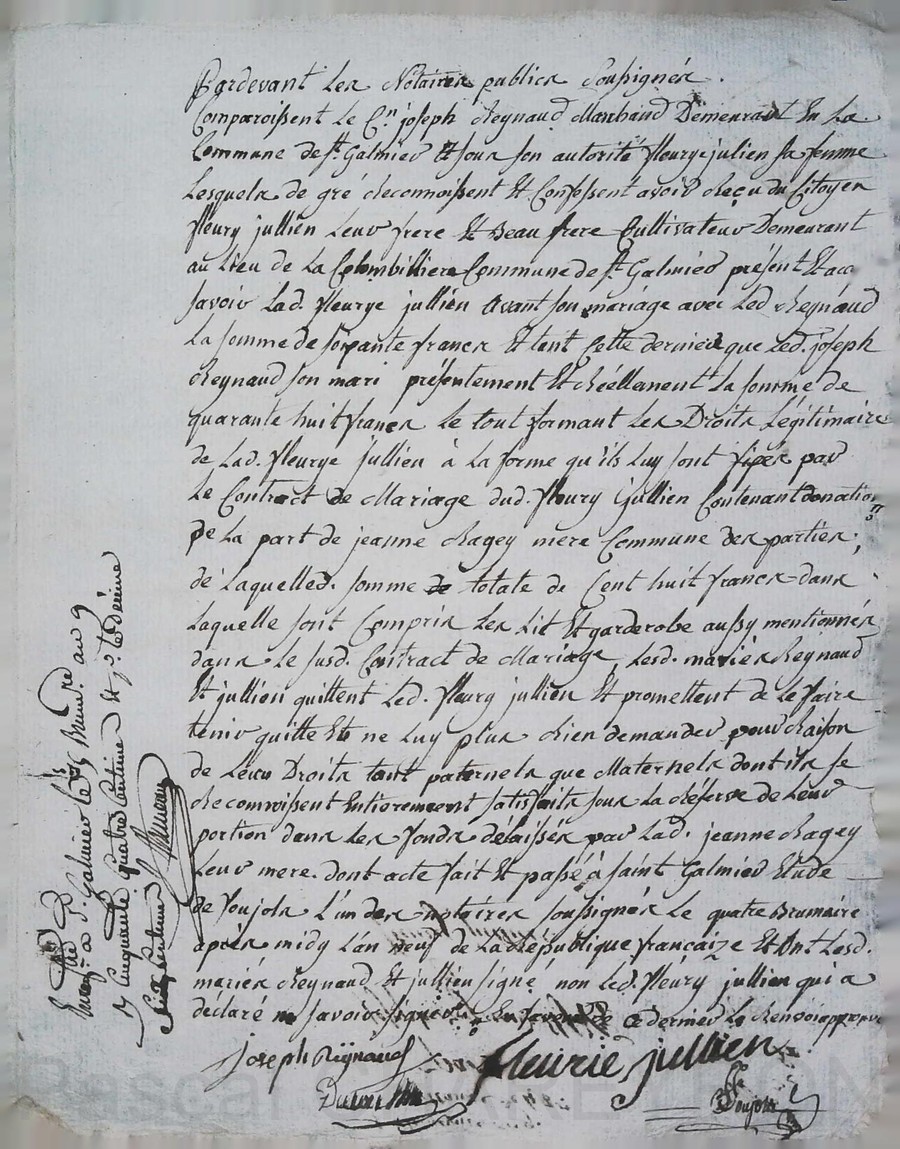 Pardevant Les Notaires publics Soussignés.
Comparoissent Le C.en joseph Reynaud Marchand Demeurant En La
Commune de St. Galmier Et sous son autorité fleurye julien sa femme
Lesquels de gré Reconnoissent Et Confessent avoir Reçu du Citoyen
fleury jullien Leur frere Et Beau frere Cultivateur Demeurant
au Lieu de La Colombilliere Commune de St. Galmier présent Et acc
savoir Lad. fleurye jullien Avant son mariage avec Led Reynaud
La somme de soixante francs Et tant Cette derniere que Led. joseph
Reynaud son mari présentement Et Réellement La somme de
quarante huit francs Le tout formant Les Droits Légitimaires
de Lad. fleurye jullien à La forme qu'ils Luy sont fixés par
Le Contract de Mariage dud. fleury jullien Contenant donation
de La part de jeanne Ragey mere Commune des parties,
de Laquelled. somme de totale de Cent huit francs dans
Laquelle sont Compris Les Lit Et garderobe aussy mentionnés
dans Le susd. Contract de Mariage, Lesd. mariés Reynaud
Et jullien quittent Led. fleury jullien Et promettent de Le faire
tenir quitte Et ne Luy plus Rien demander pour Raison
de Leurs Droits tant paternels que Maternels dont ils se
Reconnoissent Entierement satisfaits sous La Réserve de Leur
portion dans Les fonds délaissés par Lad. jeanne Ragey
Leur mere. dont acte fait Et passé à saint Galmier Etude
de Poujols L'un des notaires soussignés Le quatre Brumaire
après midy L'an neuf de La République française Et Ont Lesd.
mariés Reynaud Et jullien signé non Led. fleury jullien qui a
déclaré ne savoir signer En faveur de Ce dernier Le Renvoi approuvé
joseph Reynaud
fleurie jullien
Poujols
a St. Galmier le 5 Brum.re an 9
Cinquante quatre Centime Et Le Décime